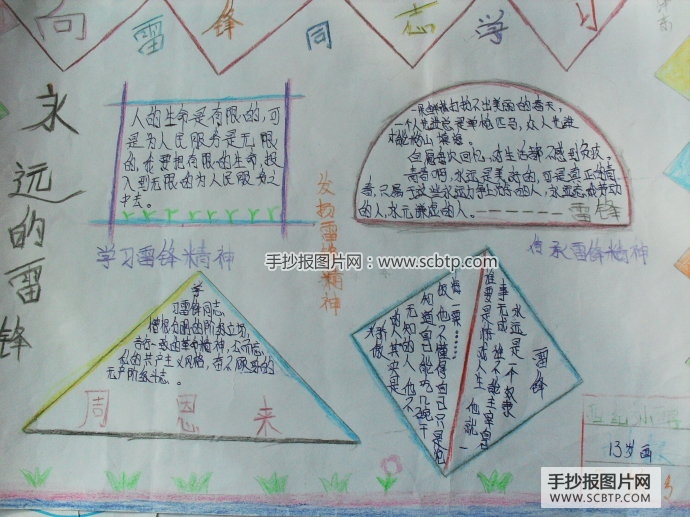 向雷锋同志学习
永远的雷锋
人的生命是有限的,可
是为人民服务是无限
的,我要把有限的生命,投
入到无限的为人民服务之
中去。
学习雷锋精神
发扬雷锋精神
一朵鲜花打扮不出美丽的春天,
一个人先进总是单枪匹马,众人先进
才能移山填海。
每每回忆,对生活都不感到负疚
青春啊,永远是美好的,可是真正的青
春,只属于这些永远力争上游的人,永远忘我劳动
的人,永远谦虚的人。------雷锋
传承雷锋精神
手抄报图片网:www.scbtp.com
学
习雷锋同志
憎爱分明的阶级立场,
言行一致的革命精神,公而忘
私的共产主义风格,奋不顾身的
无产阶级斗志。
周恩来
雷锋
永远是一个奴隶
事无成,谁不能主宰自己
谁要是游戏人生,他就一
一粟
他不懂得自己只是
知道自己能吃几碗干
无知的人,他不
的人其实是
骄傲
13岁画
手抄报图片网
WWW.SCBTP.COM